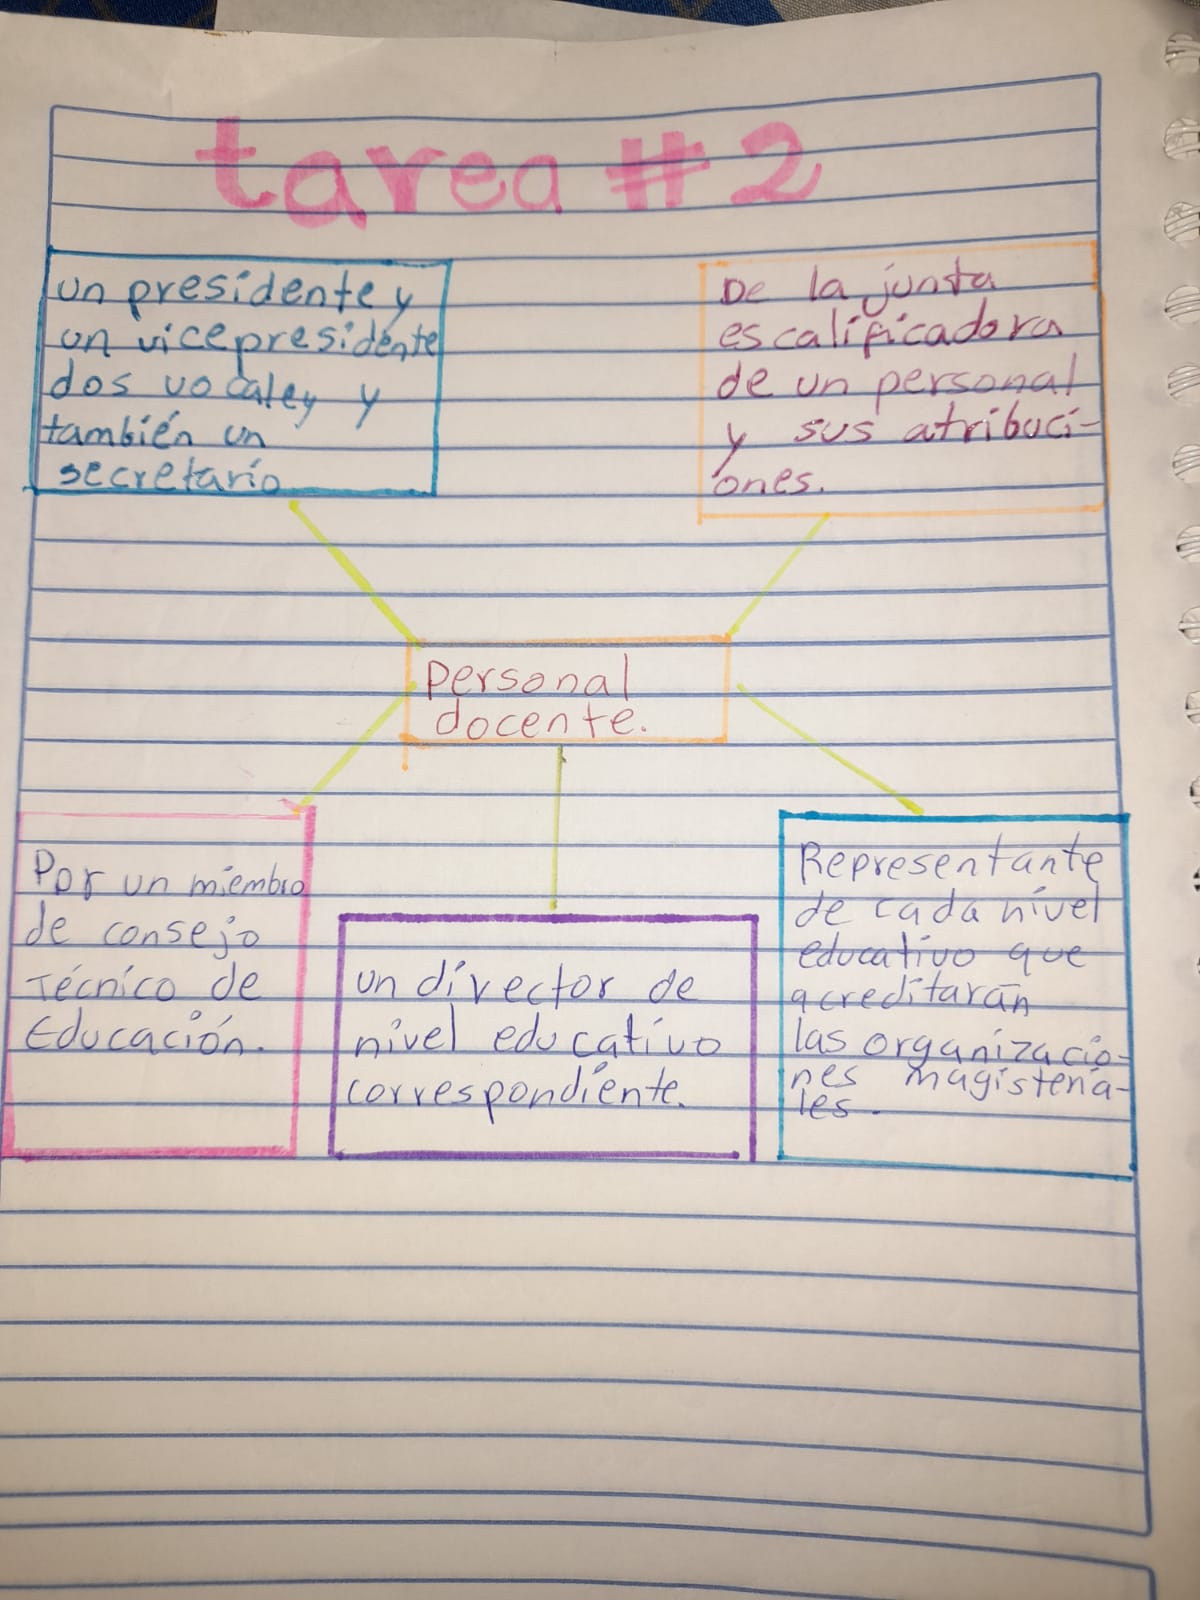 tarea # 2
un presidente y
un vicepresidente
dos vocaley y
también un
secretario
De la junta
es calificadora
de un personal
y sus atribuci-
ones.
personal
docente.
Por un miembro
de consejo
Técnico de
Educación.
un director de
nivel educativo
correspondiente.
Representante
de cada nivel
educativo que
acreditarán
las organizacio-
nes magisteria-
les.